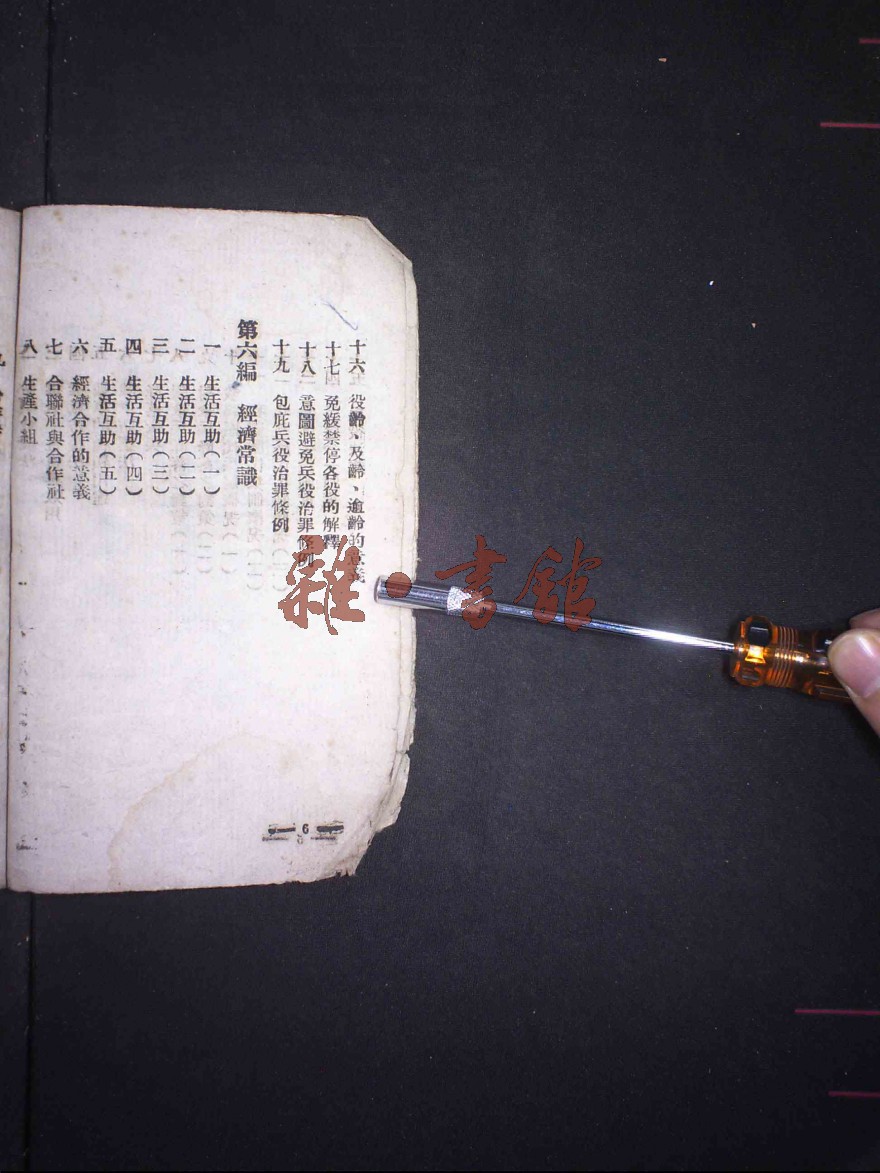 十六 役齡、及齡、逾齡的意義
十七 免緩禁停各役的解釋
十八 意圖避免兵役治罪條例
十九 包庇兵役治罪條例
第六編 經濟常識
一 生活互助(一)
二 生活互助(二)
三 生活互助(三)
四 生活互助(四)
五 生活互助(五)
六 經濟合作的意義
七 合聯社與合作社
八 生產小組
6
雜·書館